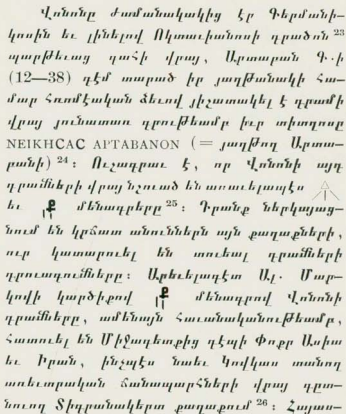 Վոնոնը ժամանակակից էր Գերմանի-
կոսին եւ լինելով Օկտաւիանոսի դրածոն 23
պարթեւաց գահի վրայ, Արտաբան Գ.ի
(12—38) դէմ տարած իր յաղթանակի հա-
մար Հռոմէական ձեւով յիշատակել է դրամի
վրայ յունատառ գրութեամբ իւր տիտղոսը
ΝΕΙΚΗϹΑϹ ΑΡΤΑΒΑΝΟΝ (= յաղթող Արտա-
բանի) 24։ Ուշագրաւ է, որ Վոնոնի այդ
դրամների վրայ նշուած են առաւելապէս
եւ մենագրերը 25։ Դրանք ներկայաց-
նում են կրճատ անուններն այն քաղաքների,
ուր կատարուել են տուեալ դրամների
դրուագումները։ Արեւելագէտ Ալ. Մար-
կովի կարծիքով մենագրով Վոնոնի
դրամները, ամենայն հաւանականութեամբ,
հատուել են Միջագետքից դէպի Փոքր Ասիա
եւ Իրան, ինչպէս նաեւ Կովկաս տանող
առեւտրական ճանապարհների վրայ գըտ-
նուող Տիգրանակերտ քաղաքում 26։ Հայաս-